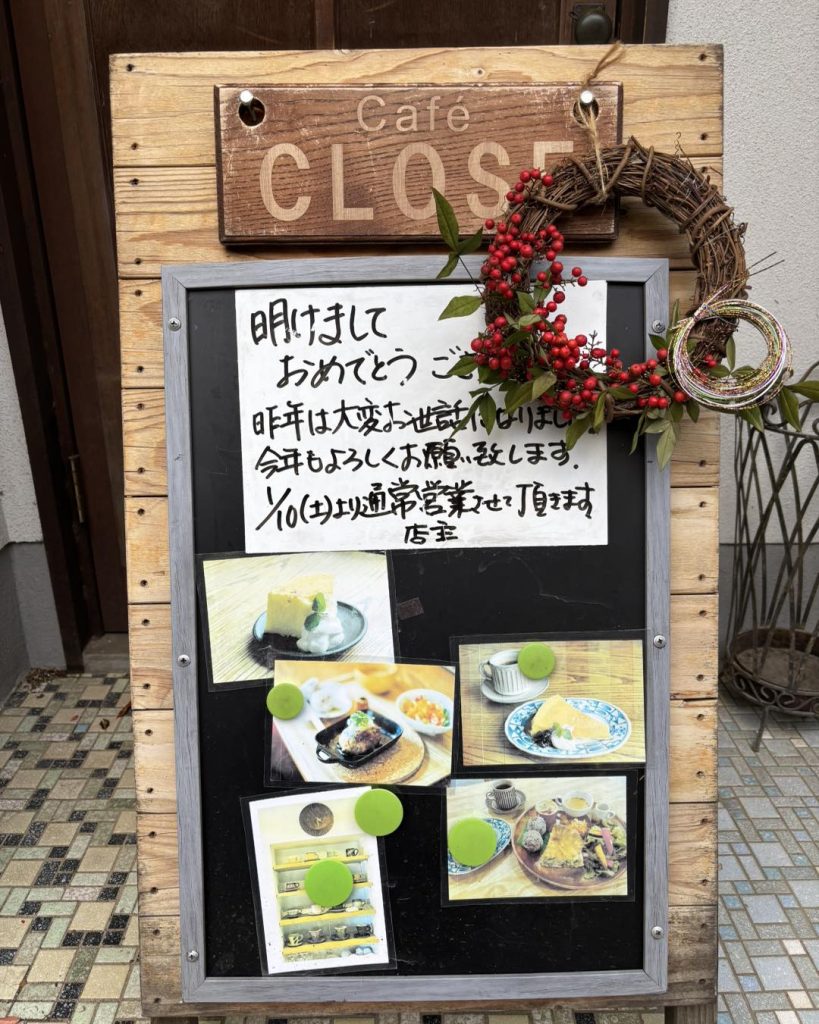 Café
CLOSE
明けまして
おめでとう ござ
昨年は大変お世話になりまし
今年もよろしくお願い致します.
1/10(土)より通常営業させて頂きます
店主